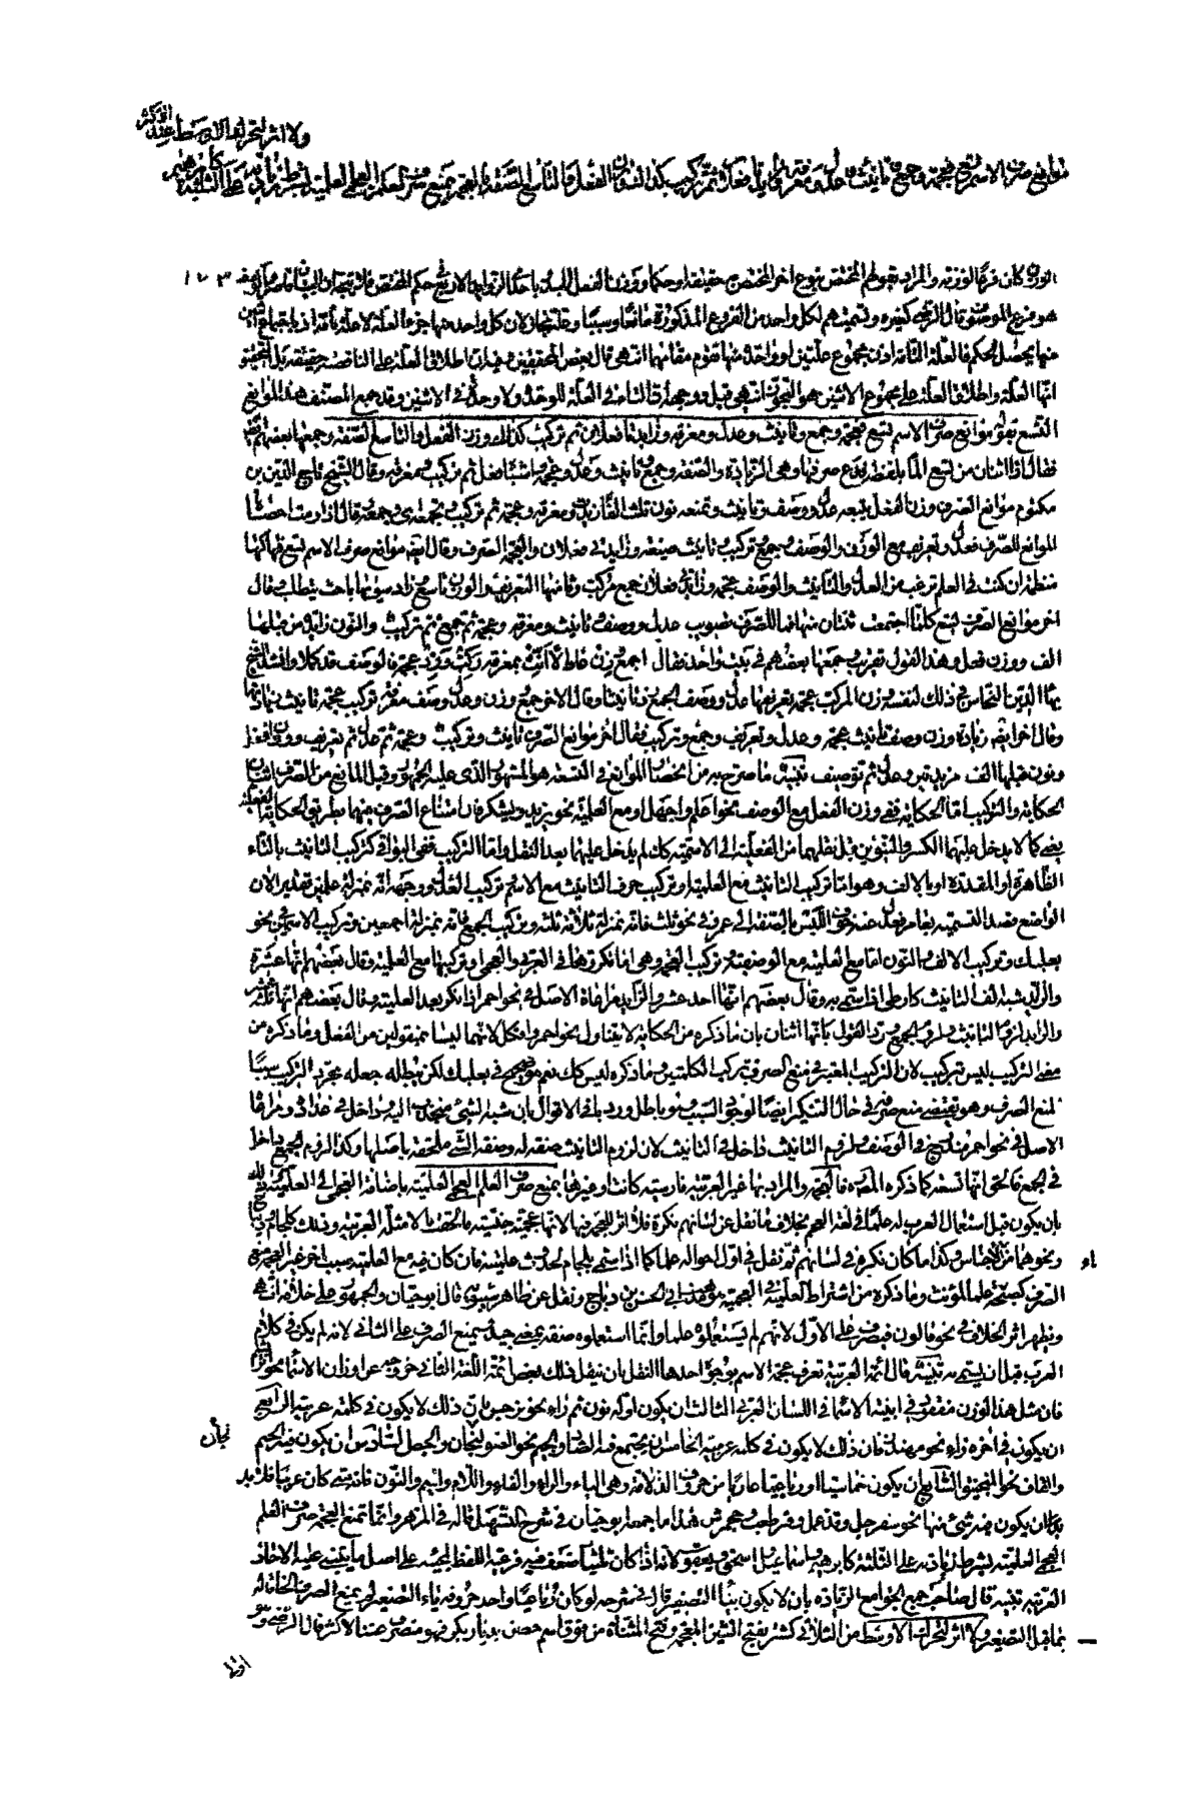 ولا اثر لتحرك الاوسط عند الاكثر
موانع صرف الاسم تسع فعجمة وجمع وتأنيث وعدل ومعرفة وزايدتا فعلان ثم تركيب كذلك وزن الفعل والتاسع الصفة فالعجمة يمنع صرف العلم العجمي العلمية بشرط زيادته على الثلثة كابرهيم
الوزن كان فرعا لوزنه والمراد بقولهم المختص بنوع اخر المختص به حقيقة او حكما ووزن الفعل المبدو باحدى الزوايد الاربع في حكم المختص ١٧٣
هو فرع للموضوع قال الرضي كغيره وتسميتهم لكل واحد من الفروع المذكورة مانعا وسببا وعلة مجاز لان كل واحد منها جزء العلة لا علة تامة اذ باجتماع اثنين
منها يحصل الحكم فالعلة التامة اذن مجموع علتين او واحدة منها تقوم مقامهما انتهى قال بعض المحققين وفيه ان اطلاق العلة على الناقصة حقيقة بل التحقيق
انها العلة واطلاق العلة على مجموع الاثنين هو التجوز انتهى قيل ووجهه ان التاء في العلة للوحدة ولا وحدة في الاثنين وقد جمع المصنف هذه الموانع
التسع بقوله موانع صرف الاسم تسع فعجمة وجمع وتأنيث وعدل ومعرفة وزايدتا فعلان ثم تركيب كذلك وزن الفعل والتاسع الصفة وجمعها بعضهم ايضا
فقال اذا اثنان من تسع الما بلفظة فدع صرفها وهي الزيادة والصفة وجمع وتأنيث وعدل وعجمة واشباه فعل ثم تركيب ومعرفة وقال الشيخ تاج الدين بن
مكتوم موانع الصرف وزن الفعل يتبعه عدل ووصف وتأنيث وتمنعه نون تلت الفا زيدت ومعرفة وعجمة ثم تركيب وتجمعه وجمعه قال اذا رمت احصاء
لموانع للصرف فعدل وتعريف مع الوزن والوصف وجمع تركيب وتأنيث صيغة وزايدتي فعلان والعجمة الصرف وقال ايضا موانع صرف الاسم تسع فهاكها
منظمة ان كنت في العلم ترغب من العدل والتأنيث والوصف عجمة وزايدتي فعلان جمع مركب وثامنها التعريف والوزن تاسع وزاد سواها باحث يتطلب وقال
اخر موانع الصرف تسع كلما اجتمعت ثنتان منها فما للصرف تصويب عدل ووصف وتأنيث ومعرفة وعجمة ثم جمع ثم تركيب والنون زايدة من قبلها
الف ووزن فعل وهذا القول تقريب وجمعها بعضهم في بيت واحد فقال اجمع وزن عادلا انث بمعرفة ركب وزد عجمة فالوصف قد كملا وانشد الشيخ
بهاء الدين النحاس في ذلك لنفسه وزن المركب عجمة تعريفها عدل ووصف الجمع زد تأنيثا وقال الاخر جمع ووزن وعدل وصف معرفة تركيب عجمة تأنيث زيادتها
وقال اخر ايضا زيادة وزن وصف تأنيث عجمة وعدل وتعريف وجمع وتركيب فقال اخر موانع الصرف تأنيث وتركيب وعجمة ثم عدل ثم تعريف ووزن فعل
ونون قبلها الف مزيدتين وعدل ثم توصيف تنبيه ما صرح به من انحصار الموانع في التسعة هو المشهور الذي عليه الجمهور وقيل المانع من الصرف اثنان
الحكاية والتركيب اما الحكاية ففي وزن الفعل مع الوصف نحو اعلم واجهل او مع العلمية نحو يزيد ويشكر فان امتناع الصرف فيهما بطريق الحكاية الفعلية
يعني كما لا يدخل عليهما الكسر والتنوين قبل نقلهما من الفعلية الى الاسمية كك لم يدخل عليهما بعد النقل واما التركيب ففي البواقي كتركيب التأنيث بالتاء
الظاهرة او المقدرة او بالالف وهو اما تركيب التأنيث مع العلمية او تركيب حرف التأنيث مع الاسم وتركيب العدل ووجهه انه بمنزلة علمين تقديرا لان
الواضع قصد التسمية بعامر فعدل عنه خوف اللبس بالصفة الى عمر وفي نحو ثلث فانه بمنزلة ثلاثة ثلثة وتركيب الجمع فانه بمنزلة اجمعين وتركيب الاسمين نحو
بعلبك وتركيب الالف والنون اما مع العلمية مع الوصفية وتركيب العجمة وهي اما نكرتها في العربي والعجمي او تركيبها مع العلمية وقال بعضهم انها عشرة
والزائد شبه الف التأنيث كارطى اذا سمي به وقال بعضهم انها احد عشر والزايد مراعاة الاصل في نحو احمر اذا نكر بعد العلمية وقال بعضهم انها ثلثة عشر
والزايد لزوم التأنيث ولزوم الجمع ورد القول بانها اثنان بان ما ذكره من الحكاية لا يتناول نحو احمر وافكل لانهما ليسا منقولين من الفعل وما ذكره من
معنى التركيب ليس تركيب لان التركيب المعتبر في منع الصرف تركيب الكلمتين وما ذكره ليس كك نعم هو صحيح في بعلبك لكن يبطله جعله مجرد التركيب سببا
لمنع الصرف وهو يقتضي منع صرفه في حال التنكير ايضا لوجود السبب وهو باطل ورد باقي الاقوال بان شبه الشيء منجذب اليه وداخل في عداده ومراعاة
الاصل في نحو احمر مندرج في الوصف ولزوم التأنيث داخل في التأنيث لان لزوم التأنيث صفة له وصفة الشيء ملحقة باصلها وكذا لزوم الجمع داخل
في الجمع فالحق انها تسعة كما ذكره المص ره فالعجمة والمراد بها غير العربية فارسية كانت او غيرها يمنع صرف العلم العجمي العلمية باضافة العجمي الى العلمية
بان يكون قبل استعمال العرب له علما في لغة العجم بخلاف ما نقل عن لسانهم نكرة فلا اثر للعجمة فيها لانها عجمية جنسية فالحقت بالامثلة العربية وذلك كلجام وديباج
ونحوهما من الاجناس وكذا ما كان نكرة في لسانهم ثم نقل في اول احواله علما كما اذا سمي بلجام لحدوث علميته فان كان فيه مع العلمية سبب اخر غير العجمة منع
الصرف كصنجة علما لمؤنث وما ذكره من اشتراط العلمية في العجمية هو مذهب ابي الحسن بن دباج ونقل عن ظاهر سيبويه قال ابو حيان والجمهور على خلافه انتهى
ويظهر اثر الخلاف في نحو قالون فيصرف على الاول لانهم لم يستعملوه علما وانما استعملوه صفة بمعنى جيد ويمنع الصرف على الثاني لانه لم يكن في كلام
العرب قبل ان يسمى به تنبيه قال ائمة العربية تعرف عجمة الاسم بوجوه احدها النقل بان ينقل ذلك بعض ائمة اللغة الثاني خروجه عن اوزان الاسماء نحو ابريسم
فان مثل هذا الوزن مفقود في ابنية الاسماء في اللسان العربي الثالث ان يكون اوله نون ثم راء نحو نرجس فان ذلك لا يكون في كلمة عربية الرابع
ان يكون في اخره زاء نحو مهندز فان ذلك لا يكون في كلمة عربية الخامس ان يجتمع فيه الصاد والجيم نحو الصولجان والجص السادس ان يكون فيه الجيم
والقاف نحو المنجنيق السابع ان يكون خماسيا او رباعيا عاريا من حروف الذلاقة وهي الباء والراء والفاء واللام والميم والنون فانه متى كان عربيا فلا بد
بد ان يكون فيه شيء منها نحو سفرجل وقذعمل وقرطعب وجحمرش فهذا ما جمعه ابو حيان في شرح التسهيل قاله في المزهر وانما تمنع العجمة صرف العلم
العجمي العلمية بشرط زيادته على الثلثة كابرهيم واسماعيل واسحق ويعقوب لانه اذا كان ثلثيا ضعف فيه فرعية اللفظ لمجيئه على اصل ما يبنى عليه الاحاد
العربية تنبيه قال صاحب جمع الجوامع الزيادة بان لا يكون بياء التصغير قال في شرحه لو كان رباعيا واحد حروفه ياء التصغير لم يمنع الصرف الحاقا له
بما قبل التصغير ولا اثر لتحرك الاوسط من الثلاثي كشتر بفتح الشين المعجمة وفتح المثناة من فوق اسم حصن بديار بكر فهو منصرف عند الاكثر قال الرضي وهو